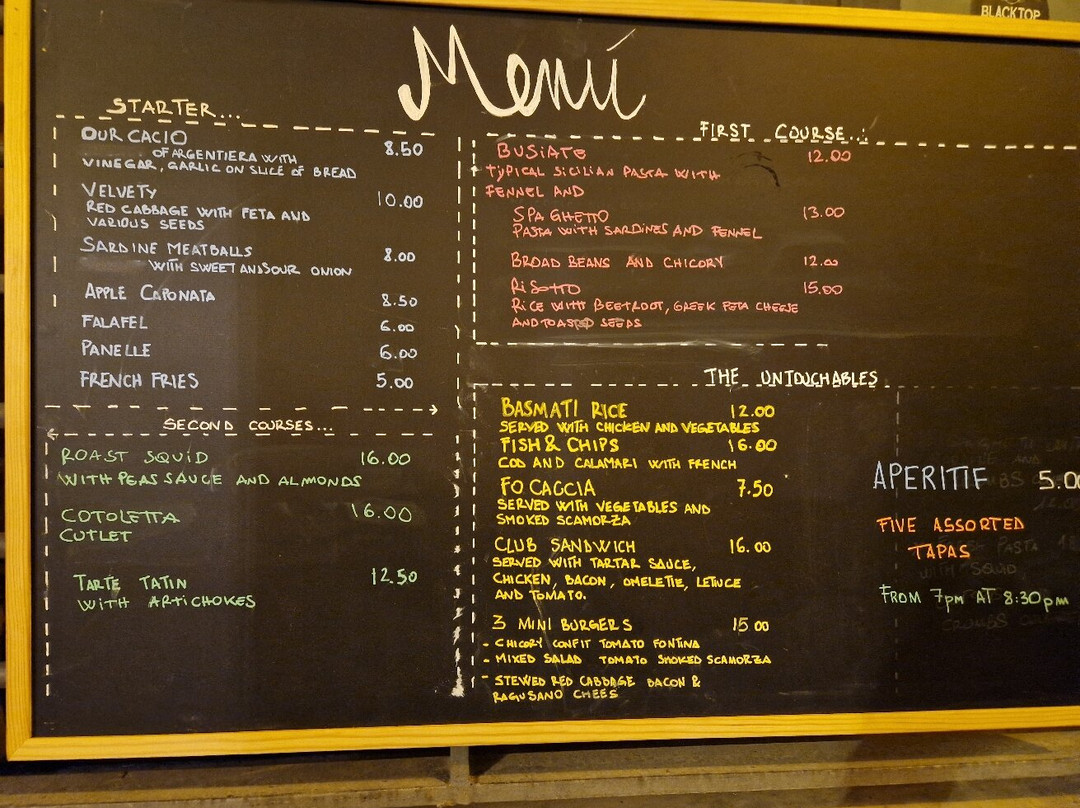 BLACKTOP
Menú
STARTER...
OUR CACIO 8.50
OF ARGENTIERA WITH
VINEGAR, GARLIC ON SLICE OF BREAD
VELVETY 10.00
RED CABBAGE WITH FETA AND
VARIOUS SEEDS
SARDINE MEATBALLS 8.00
WITH SWEET AND SOUR ONION
APPLE CAPONATA 8.50
FALAFEL 6.00
PANELLE 6.00
FRENCH FRIES 5.00
SECOND COURSES...
ROAST SQUID 16.00
WITH PEAS SAUCE AND ALMONDS
COTOLETTA 16.00
CUTLET
TARTE TATIN 12.50
WITH ARTICHOKES
FIRST COURSE...
BUSIATE 12.00
TYPICAL SICILIAN PASTA WITH
FENNEL AND
SPAGHETTO 13.00
PASTA WITH SARDINES AND FENNEL
BROAD BEANS AND CHICORY 12.00
RISOTTO 15.00
RICE WITH BEETROOT, GREEK FETA CHEESE
AND TOASTED SEEDS
THE UNTOUCHABLES
BASMATI RICE 12.00
SERVED WITH CHICKEN AND VEGETABLES
FISH & CHIPS 16.00
COD AND CALAMARI WITH FRENCH
FOCACCIA 7.50
SERVED WITH VEGETABLES AND
SMOKED SCAMORZA
CLUB SANDWICH 16.00
SERVED WITH TARTAR SAUCE,
CHICKEN, BACON, OMELETTE, LETUCE
AND TOMATO.
3 MINI BURGERS 15.00
- CHICORY CONFIT TOMATO FONTINA
- MIXED SALAD TOMATO SMOKED SCAMORZA
- STEWED RED CABBAGE BACON &
RAGUSANO CHEES
APERITIF 5.00
FIVE ASSORTED
TAPAS
FROM 7pm AT 8:30pm